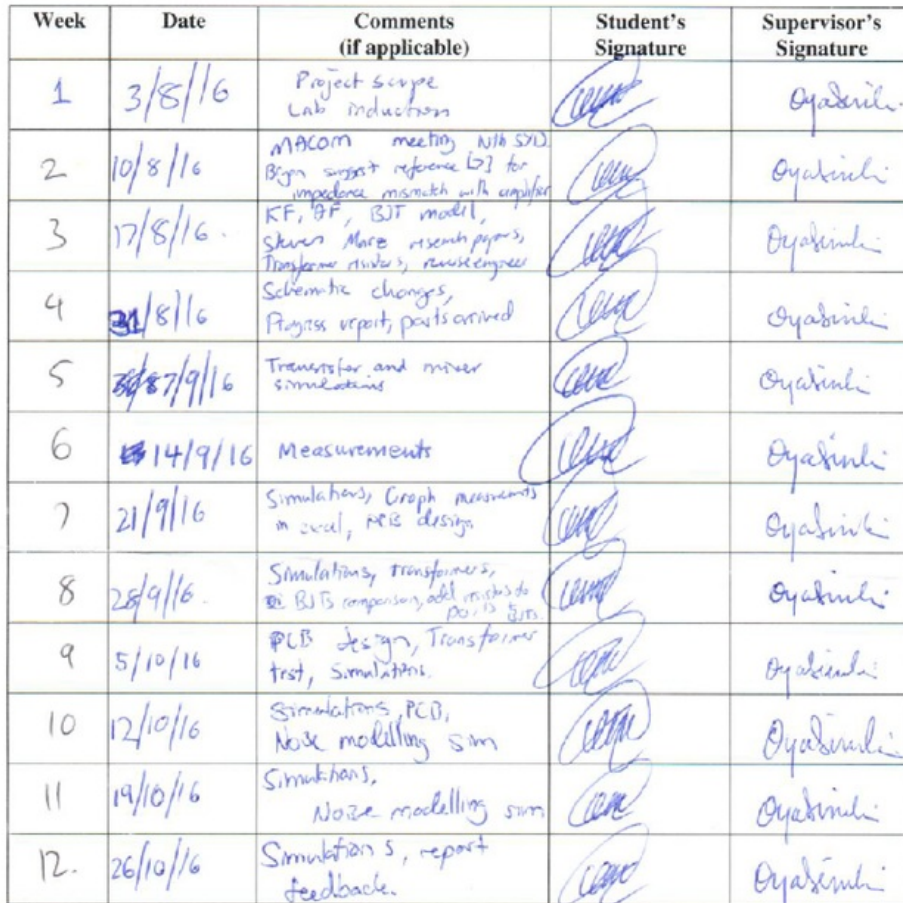 Week Date Comments (if applicable) Student's Signature Supervisor's Signature
1 3/8/16 Project scope
Lab induction
2 10/8/16 MACOM meeting with
suggest reference [7] for
impedance mismatch with amplifier
3 17/8/16. KF, AF, BJT model,
research papers,
Transformer resistors, reverse engineer
4 31/8/16 Schematic changes,
Progress report, parts arrived
5 7/9/16 Transistor and mixer
simulations
6 14/9/16 Measurements
7 21/9/16 Simulations, Graph measurements
in excel, PCB design
8 28/9/16. Simulations, transformers,
BJTs comparison, add resistors to
BJTs.
9 5/10/16 PCB design, Transformer
test, Simulations.
10 12/10/16 Simulations, PCB,
Noise modelling sim
11 19/10/16 Simulations,
Noise modelling sim
12. 26/10/16 Simulations, report
feedback.